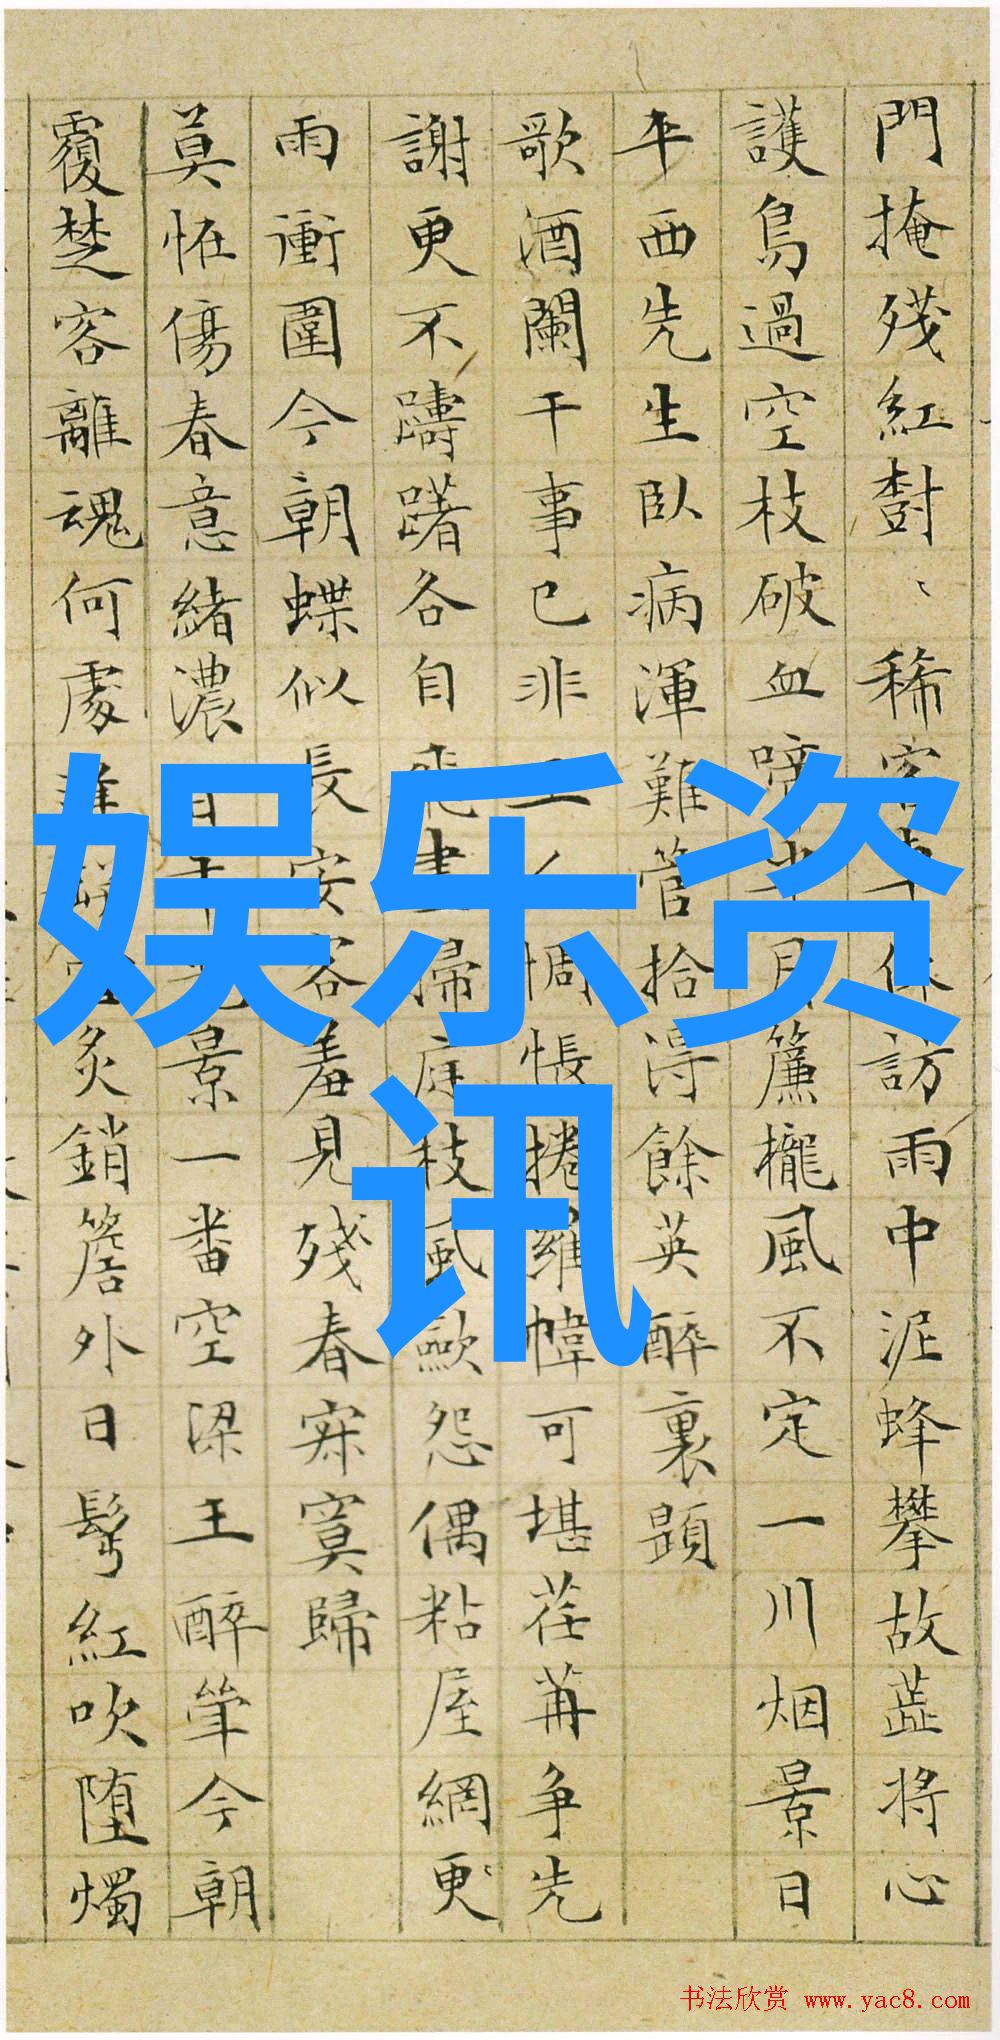 門掩殘紅樹〻稀客休訪雨中泥蜂攀故蕋將心
護鳥過空枝破血啼月簾櫳風不定一川烟景日
平西先生臥病渾難管拾得餘英醉裏題
歌酒闌干事已非人惆悵捲羅幃可堪荏苒爭先
謝更不躊躇各自飛掃庭枝風歟怨偶粘屋網更
雨衝圍今朝蝶似長安客羞見殘春寂寞歸
莫恠傷春意緒濃百年光景一番空梁王醉筆今朝
覆楚客離魂何處炙銷簷外日髩紅吹墮燭
娱乐资
讯
书法欣赏 www.yac8.com